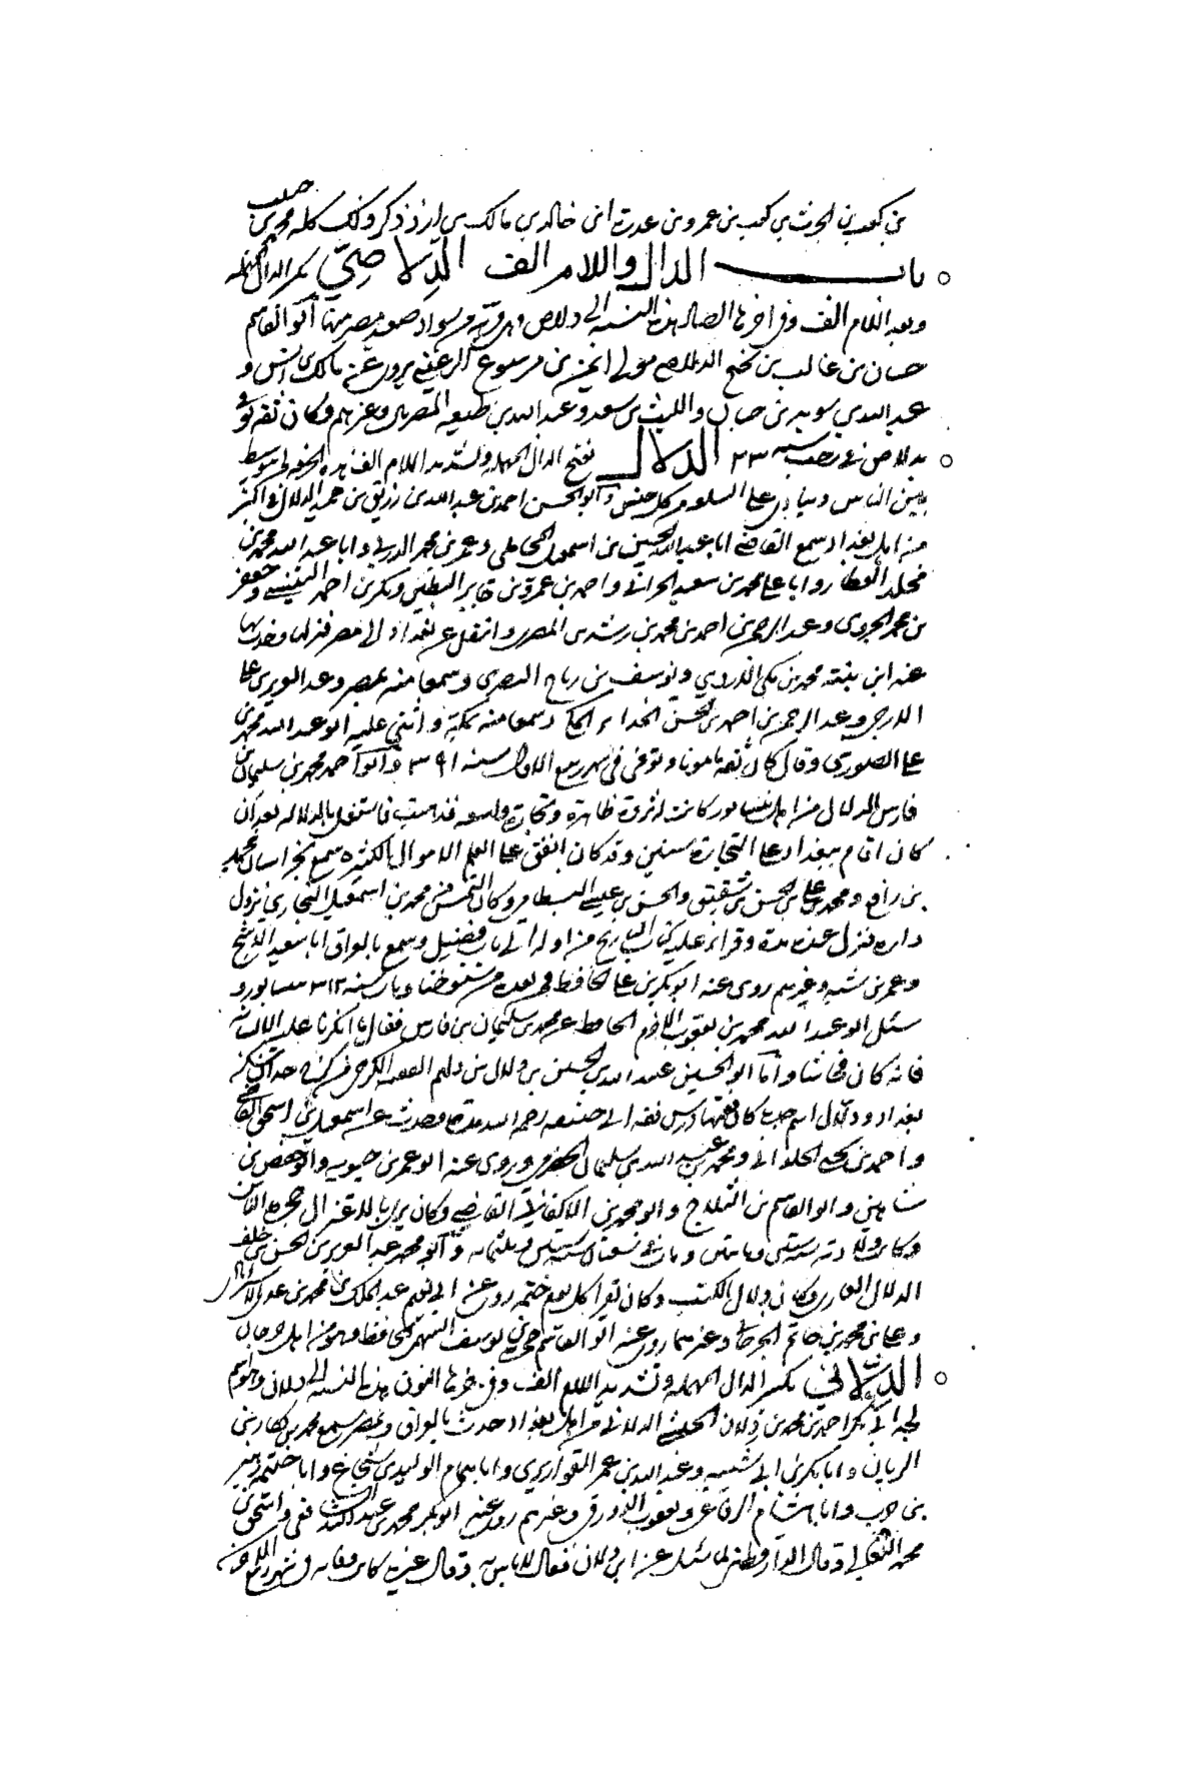 بن كعب بن الحرث بن كعب بن عمرو بن خالد بن مالك بن ادد ذكر ذلك كله محمد بن حبيب
باب الدال واللام الف الدلاصي بكسر الدال المهملة
وبعد اللام الف وفي اخرها الصاد هذه النسبة الى دلاص وهي قرية من سواد صعيد مصر منها ابو القاسم
حسان بن غالب بن نجيح الدلاصي مولى ايمن بن مرسوع الرعيني يروى عن مالك بن انس و
عبد الله بن سويد بن حيان والليث بن سعد وعبد الله بن لهيعة المصريين وغيرهم وكان ثقة توفي
بدلاص في رجب سنة ٢٣ الدلال بفتح الدال المهملة وتشديد اللام الف هذه الحرفة لمن يتوسط
بين الناس وينادى على السلعة من كل جنس وابو الحسن احمد بن عبد الله بن رزيق بن حميد الدلال في اكثر
من اهل بغداد سمع القاضي ابا عبد الله الحسين بن اسمعيل المحاملي وعمر بن محمد الدربي وابا عبد الله محمد بن
مخلد العطار وابا علي محمد بن سعيد الحراني واحمد بن عمرو بن جابر وبكر بن احمد التنيسي وجعفر
بن محمد وعبد الرحمن بن احمد بن محمد بن رشدين المصري وانتقل عن بغداد الى مصر فنزلها وحدث بها
عنه ابن بنته محمد بن مكي الازدي ويوسف بن رباح البصري وسمعا منه بمصر وعبد العزيز بن علي
الازجي وعبد الرحمن بن احمد بن الحسن سمعا منه بمكة واثنى عليه ابو عبد الله محمد بن
علي الصوري وقال كان ثقة مامونا وتوفي في شهر ربيع الاول سنة ٣٩١ وابو احمد محمد بن سليمان بن
فارس الدلال من اهل نيسابور كانت له ثروة ظاهرة وتجارة واسعة فذهبت فاشتغل بالدلالة بعد ان
كان اقام ببغداد على التجارة سنين وقد كان انفق على العلم الاموال الكثيرة سمع بخراسان محمد
بن رافع ومحمد بن علي بن الحسن بن شقيق والحسن بن عيسى البسطامي وكان التمس من محمد بن اسمعيل البخاري نزول
داره فنزل عنده مدة وقرا عليه كتاب التاريخ من اوله الى باب فضيل وسمع بالعراق ابا سعيد الاشج
وعمر بن شبه وغيرهم روى عنه ابو بكر بن علي الحافظ فمن بعده من شيوخنا ومات سنة ٣١٢ بنيسابور و
سئل ابو عبد الله محمد بن يعقوب الاخرم الحافظ عن محمد بن سليمان بن فارس فقال ما انكرنا عليه الا لسانه
فانه كان فحاشا واما ابو الحسين عبيد الله بن الحسين بن دلال بن دلهم الفقيه الكرخي من كرخ جدان سكن
بغداد ودلال اسم جده كان فقيها درس فقه ابي حنيفة رحمه الله مدة وحدث عن اسمعيل بن اسحق القاضي
واحمد بن يحيى الحلواني ومحمد بن عبد الله بن سليمان الحضرمي وروى عنه ابو عمر بن حيويه وابو حفص بن
شاهين وابو القاسم بن الثلاج وابو محمد بن الاكفاني القاضي وكان يرمى بالاعتزال
وكانت ولادته سنة ستين ومائتين ومات في شعبان سنة وثلثمائة وابو محمد عبد العزيز بن الحسن بن خلف
الدلال القاري وكان دلال الكتب وكان يقرا كل يوم ختمة روى عن ابي نعيم عبد الملك بن محمد بن عدي الاستراباذي
وعلي بن محمد بن حاتم الجرجاني وغيرهما روى عنه ابو القاسم حمزة بن يوسف السهمي الحافظ وهو من اهل جرجان
الدلاني بكسر الدال المهملة وتشديد اللام الف وفي اخرها النون هذه النسبة الى دلان وهو اسم
لجد ابي بكر احمد بن محمد بن دلان الدلاني من اهل بغداد حدث بالعراق وبمصر سمع محمد بن بكار بن
الريان وابا بكر بن ابي شيبة وعبيد الله بن عمر القواريري وابا همام الوليد بن شجاع وابا خيثمة زهير
بن حرب وابا هشام الرفاعي ويعقوب الدورقي وغيرهم روى عنه ابو بكر محمد بن عبد الله الشافعي واسحق بن
محمد النعالي وقال الدارقطني لما سئل عن ابن دلان فقال لا باس به وقال غيره كانت وفاته في شهر ربيع